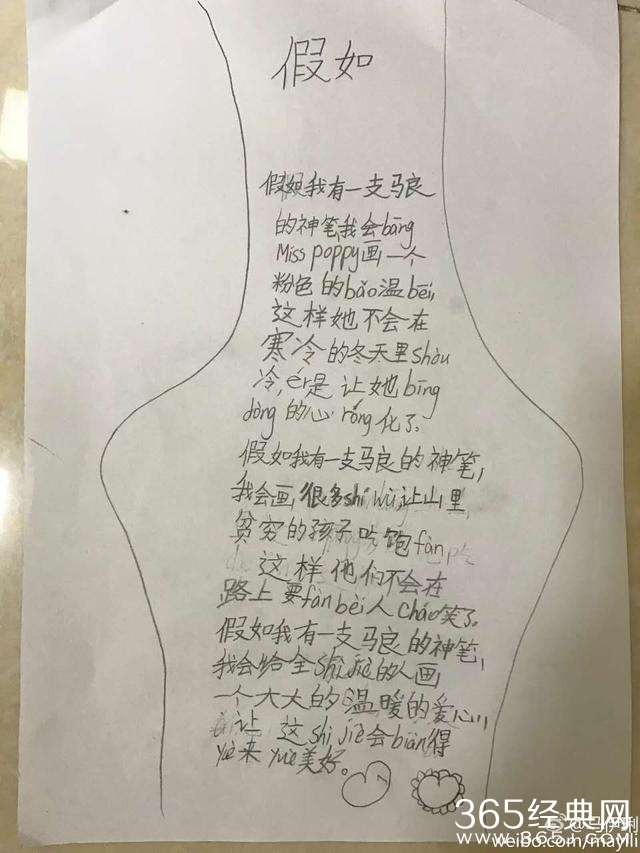 假如
假如我有一支马良
的神笔,我会bāng
Miss poppy画一个
粉色的bǎo温bēi,
这样她不会在
寒冷的冬天里shòu
冷,ér是让她bīng
dòng的心róng化了。
假如我有一支马良的神笔,
我会画很多shí wù,让山里
贫穷的孩子吃饱fàn
这样他们不会在
路上要fàn bèi人cháo笑了。
假如我有一支马良的神笔,
我会给全shì jiè的人画
一个大大的温暖的爱心,
让这shì jiè会biàn得
yuè来yuè美好。
365经典网
www.365J.COM
@马伊琍
weibo.com/mayili